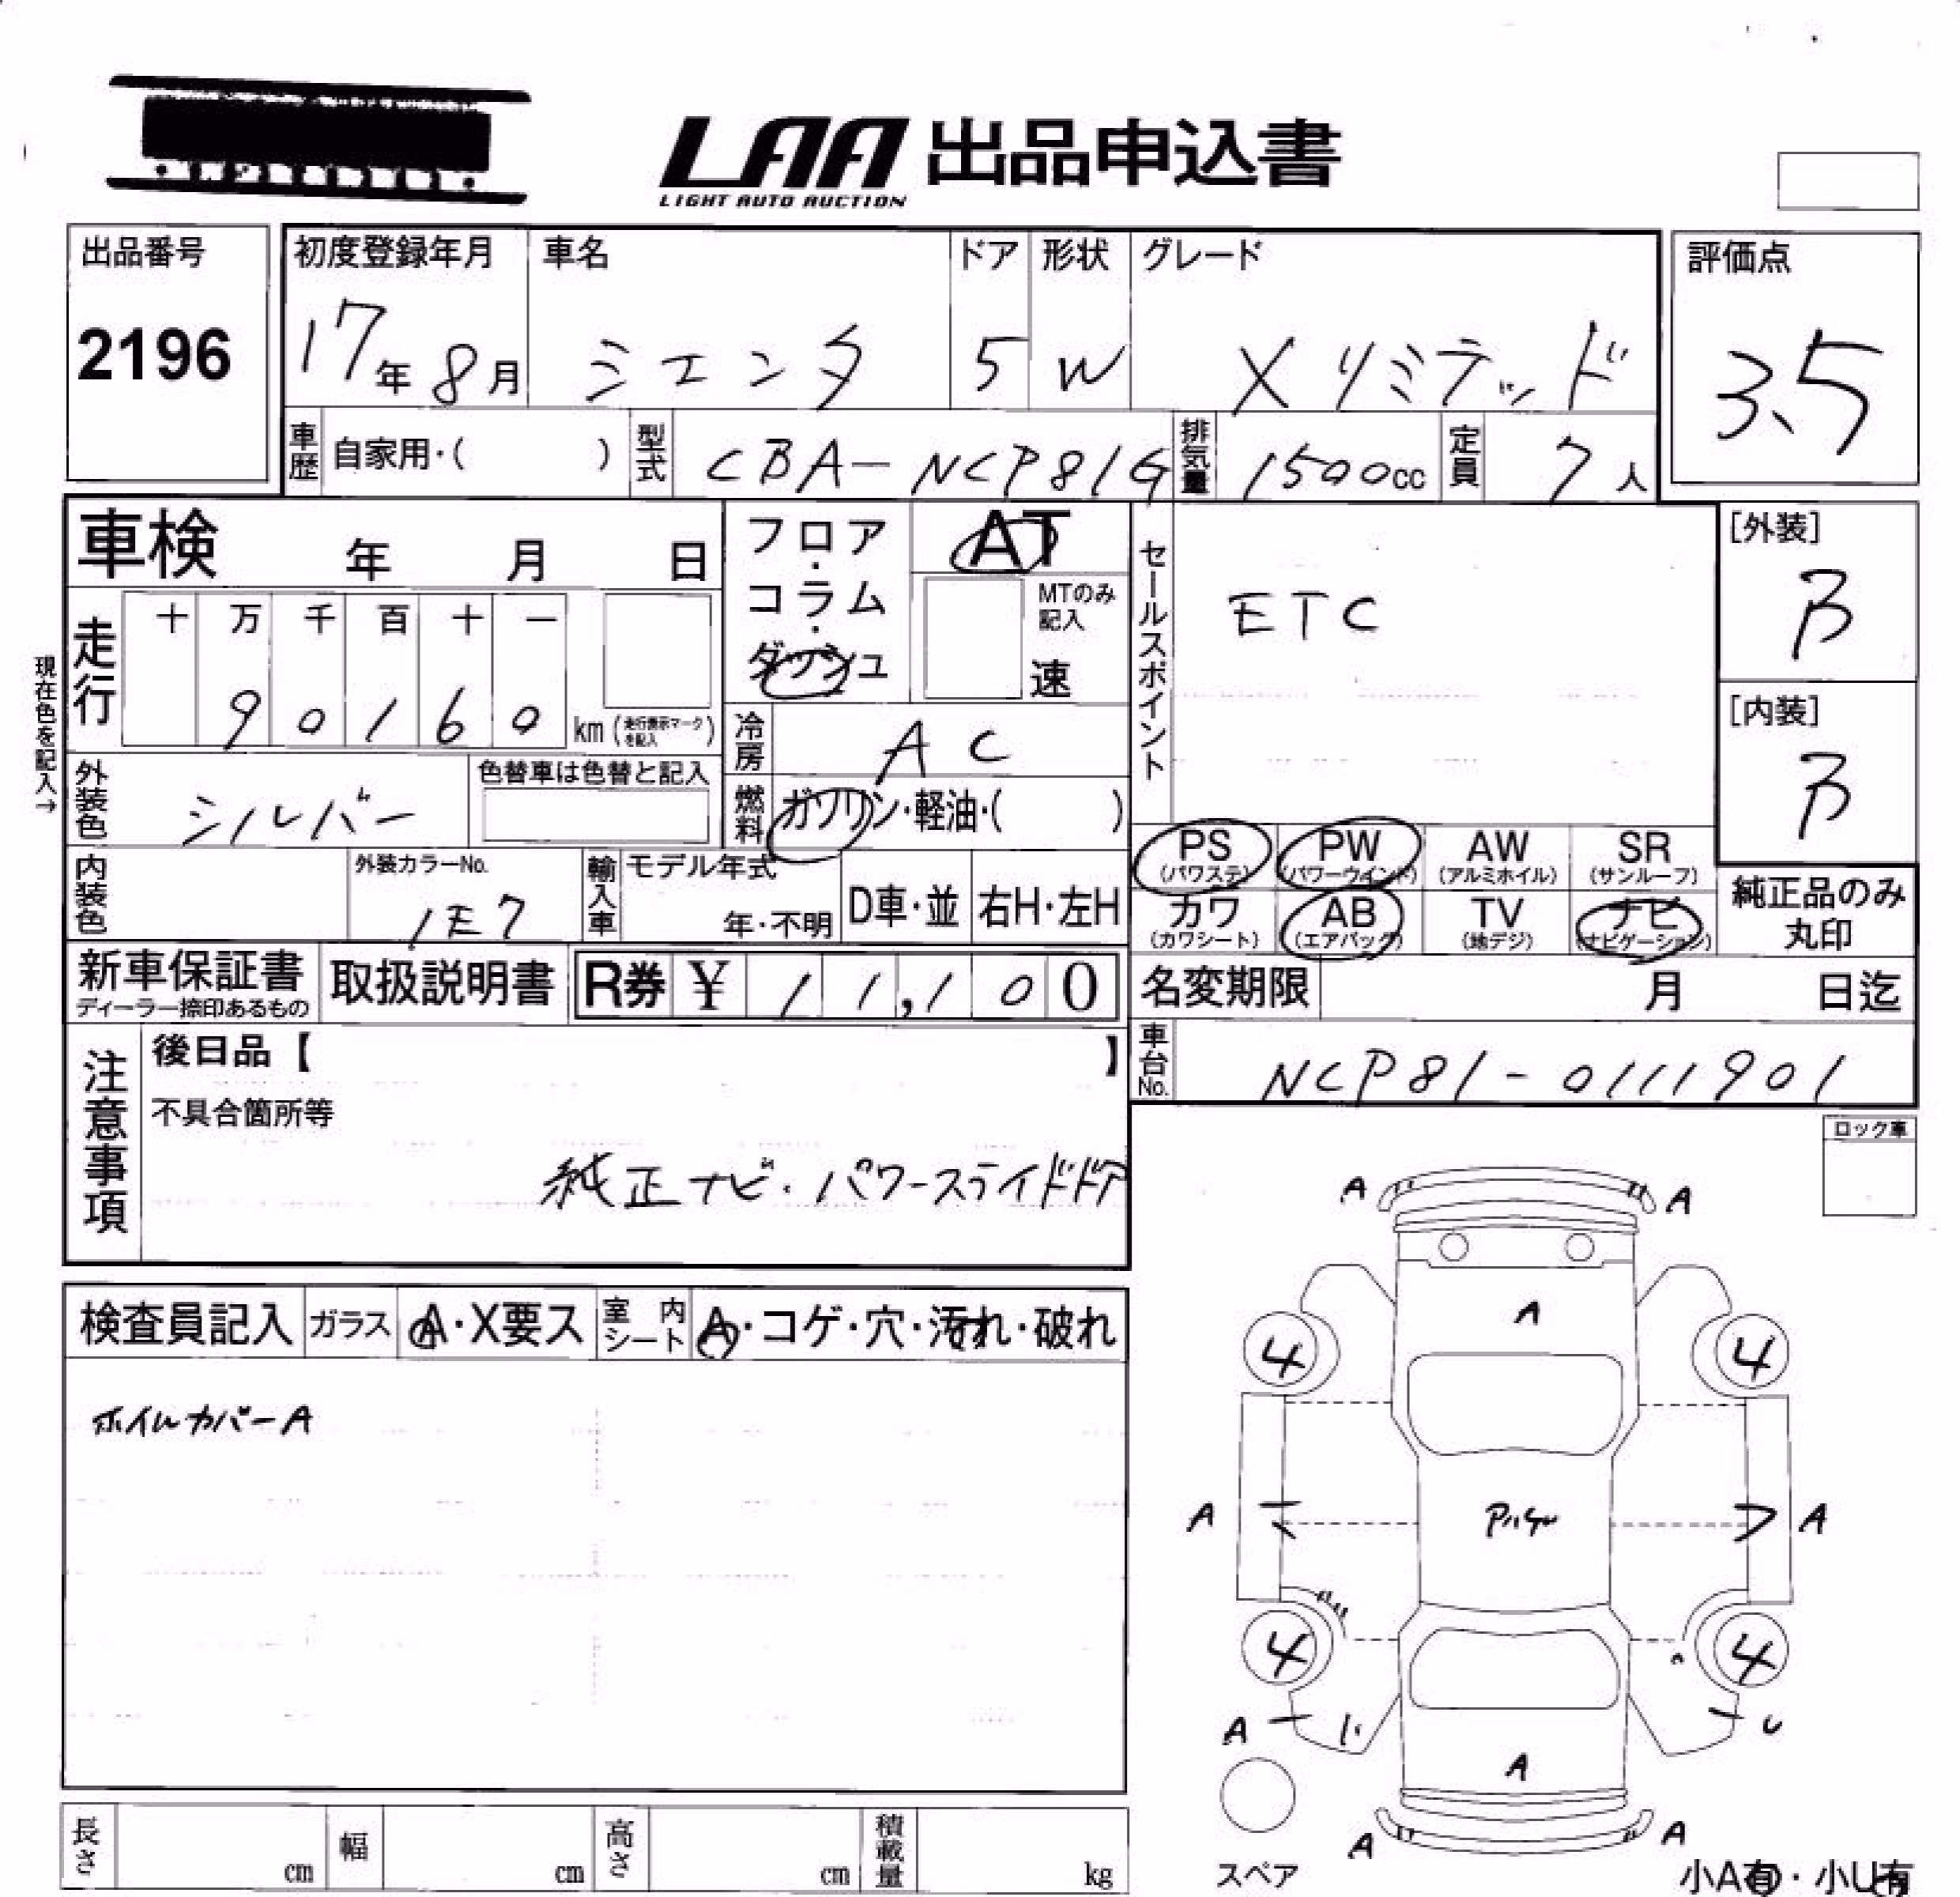 LAA 出品申込書
LIGHT AUTO AUCTION
出品番号
2196
初度登録年月
17年8月
車名
シエンタ
ドア
5
形状
W
グレード
Xリミテッド
評価点
3.5
車歴 自家用・( )
型式 CBA-NCP81G
排気量 1500cc
定員 7人
車検 年 月 日
フロア・コラム・ダッシュ
AT
MTのみ記入
速
セールスポイント
ETC
[外装]
B
[内装]
B
現在色を記入→
走行
十 万 千 百 十 一
9 0 1 6 0 km (走行表示マークを記入)
冷房 AC
外装色 シルバー
色替車は色替と記入
燃料 ガソリン・軽油・( )
内装色
外装カラーNo.
1E7
輸入車 モデル年式
年・不明
D車・並
右H・左H
PS (パワステ)
PW (パワーウインド)
AW (アルミホイル)
SR (サンルーフ)
カワ (カワシート)
AB (エアバック)
TV (地デジ)
ナビ (ナビゲーション)
純正品のみ
丸印
新車保証書
ディーラー捺印あるもの
取扱説明書
R券 ¥ 11,100
名変期限 月 日迄
車台No. NCP81-0111901
注意事項
後日品【 】
不具合箇所等
純正ナビ・パワースライドドア
ロック車
検査員記入
ガラス A・X要ス
室内シート A・コゲ・穴・汚れ・破れ
ホイルカバーA
A A
A
4 4
A A
4 4
A U
A
A A
スペア
小A有・小U有
長さ cm
幅 cm
高さ cm
積載量 kg